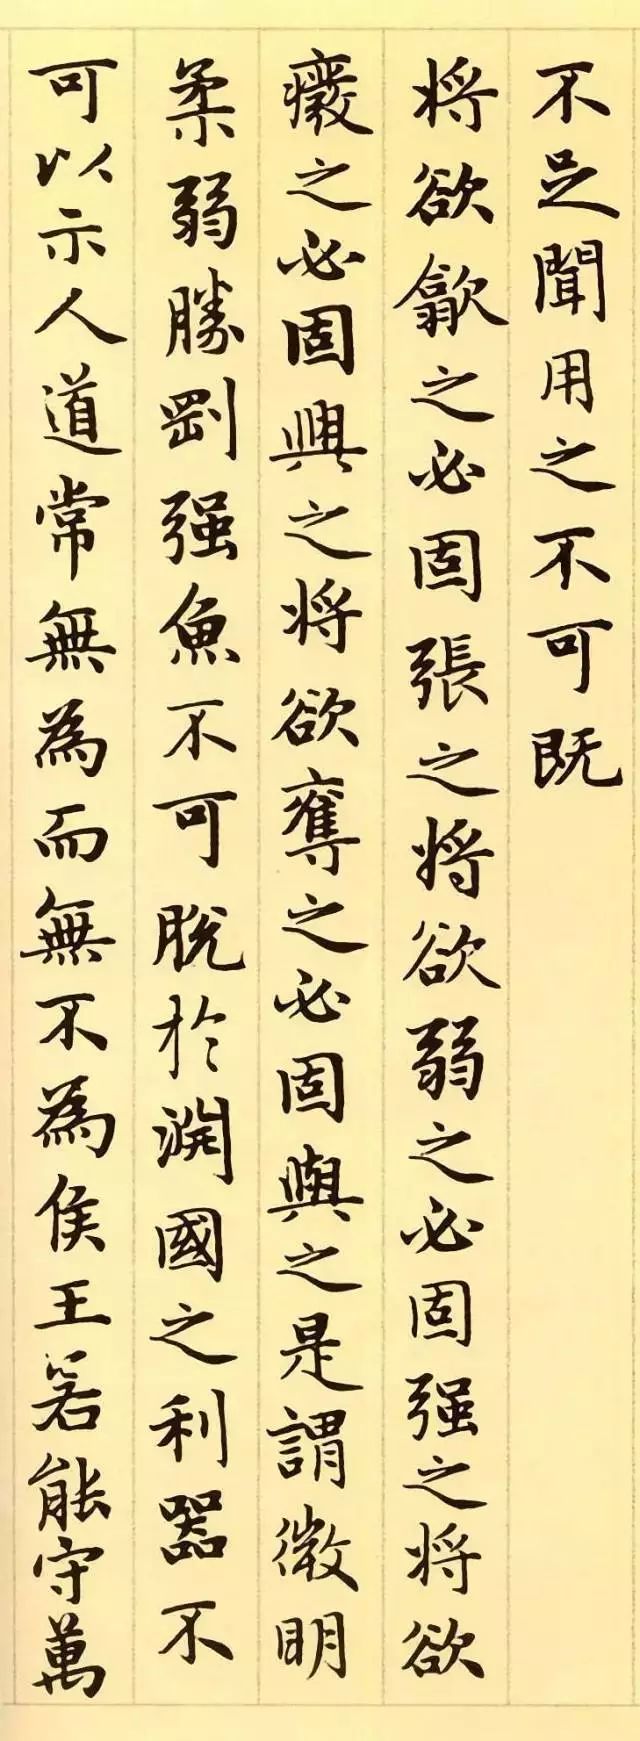 不足聞用之不可既
將欲歙之必固張之將欲弱之必固强之將欲
癈之必固興之將欲奪之必固與之是謂微明
柔弱勝剛强魚不可脫於淵國之利器不
可以示人道常無為而無不為侯王若能守萬